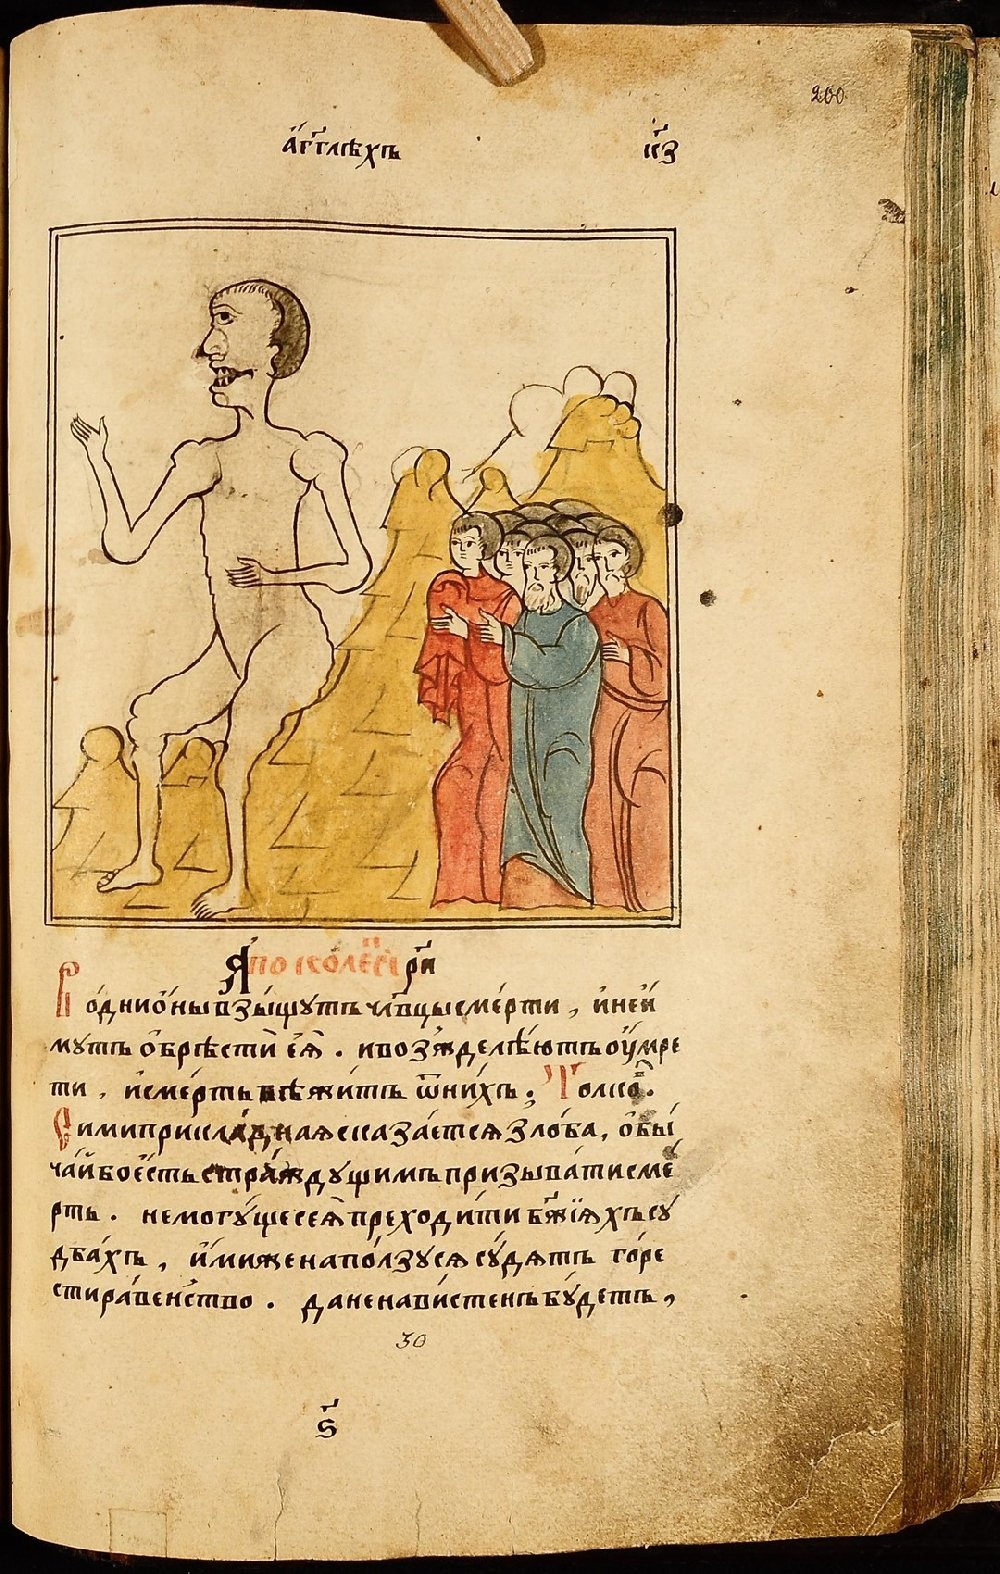 200
а҆́гг҃лѣхъ
к҃з
Апокале́ѱ рі҃и
Во дни ѻ҆́ны взы́щутъ чл҃вцы сме́рти, и҆ не и҆́
мутъ ѻ҆брѣстѝ еѧ̀. и возжделѣ́ютъ оу҆мре
ти, и҆ сме́рть бѣжи́тъ ѿ ни́хъ. Толко́в.
Сими прикла́днаѧ сказа́етсѧ ѕло́ба, ѻ҆бы́
ча́й бо е҆́сть стра́ждущимъ призыва́ти сме́
рть. не могу́ще сеѧ̀ преходи́ти бж҃їѧхъ су
дба́хъ, и҆́миже на по́лзу сѧ су́дѧтъ го́ре
сти ра́венство. да ненави́стенъ бу́детъ,
30
ѕ҃